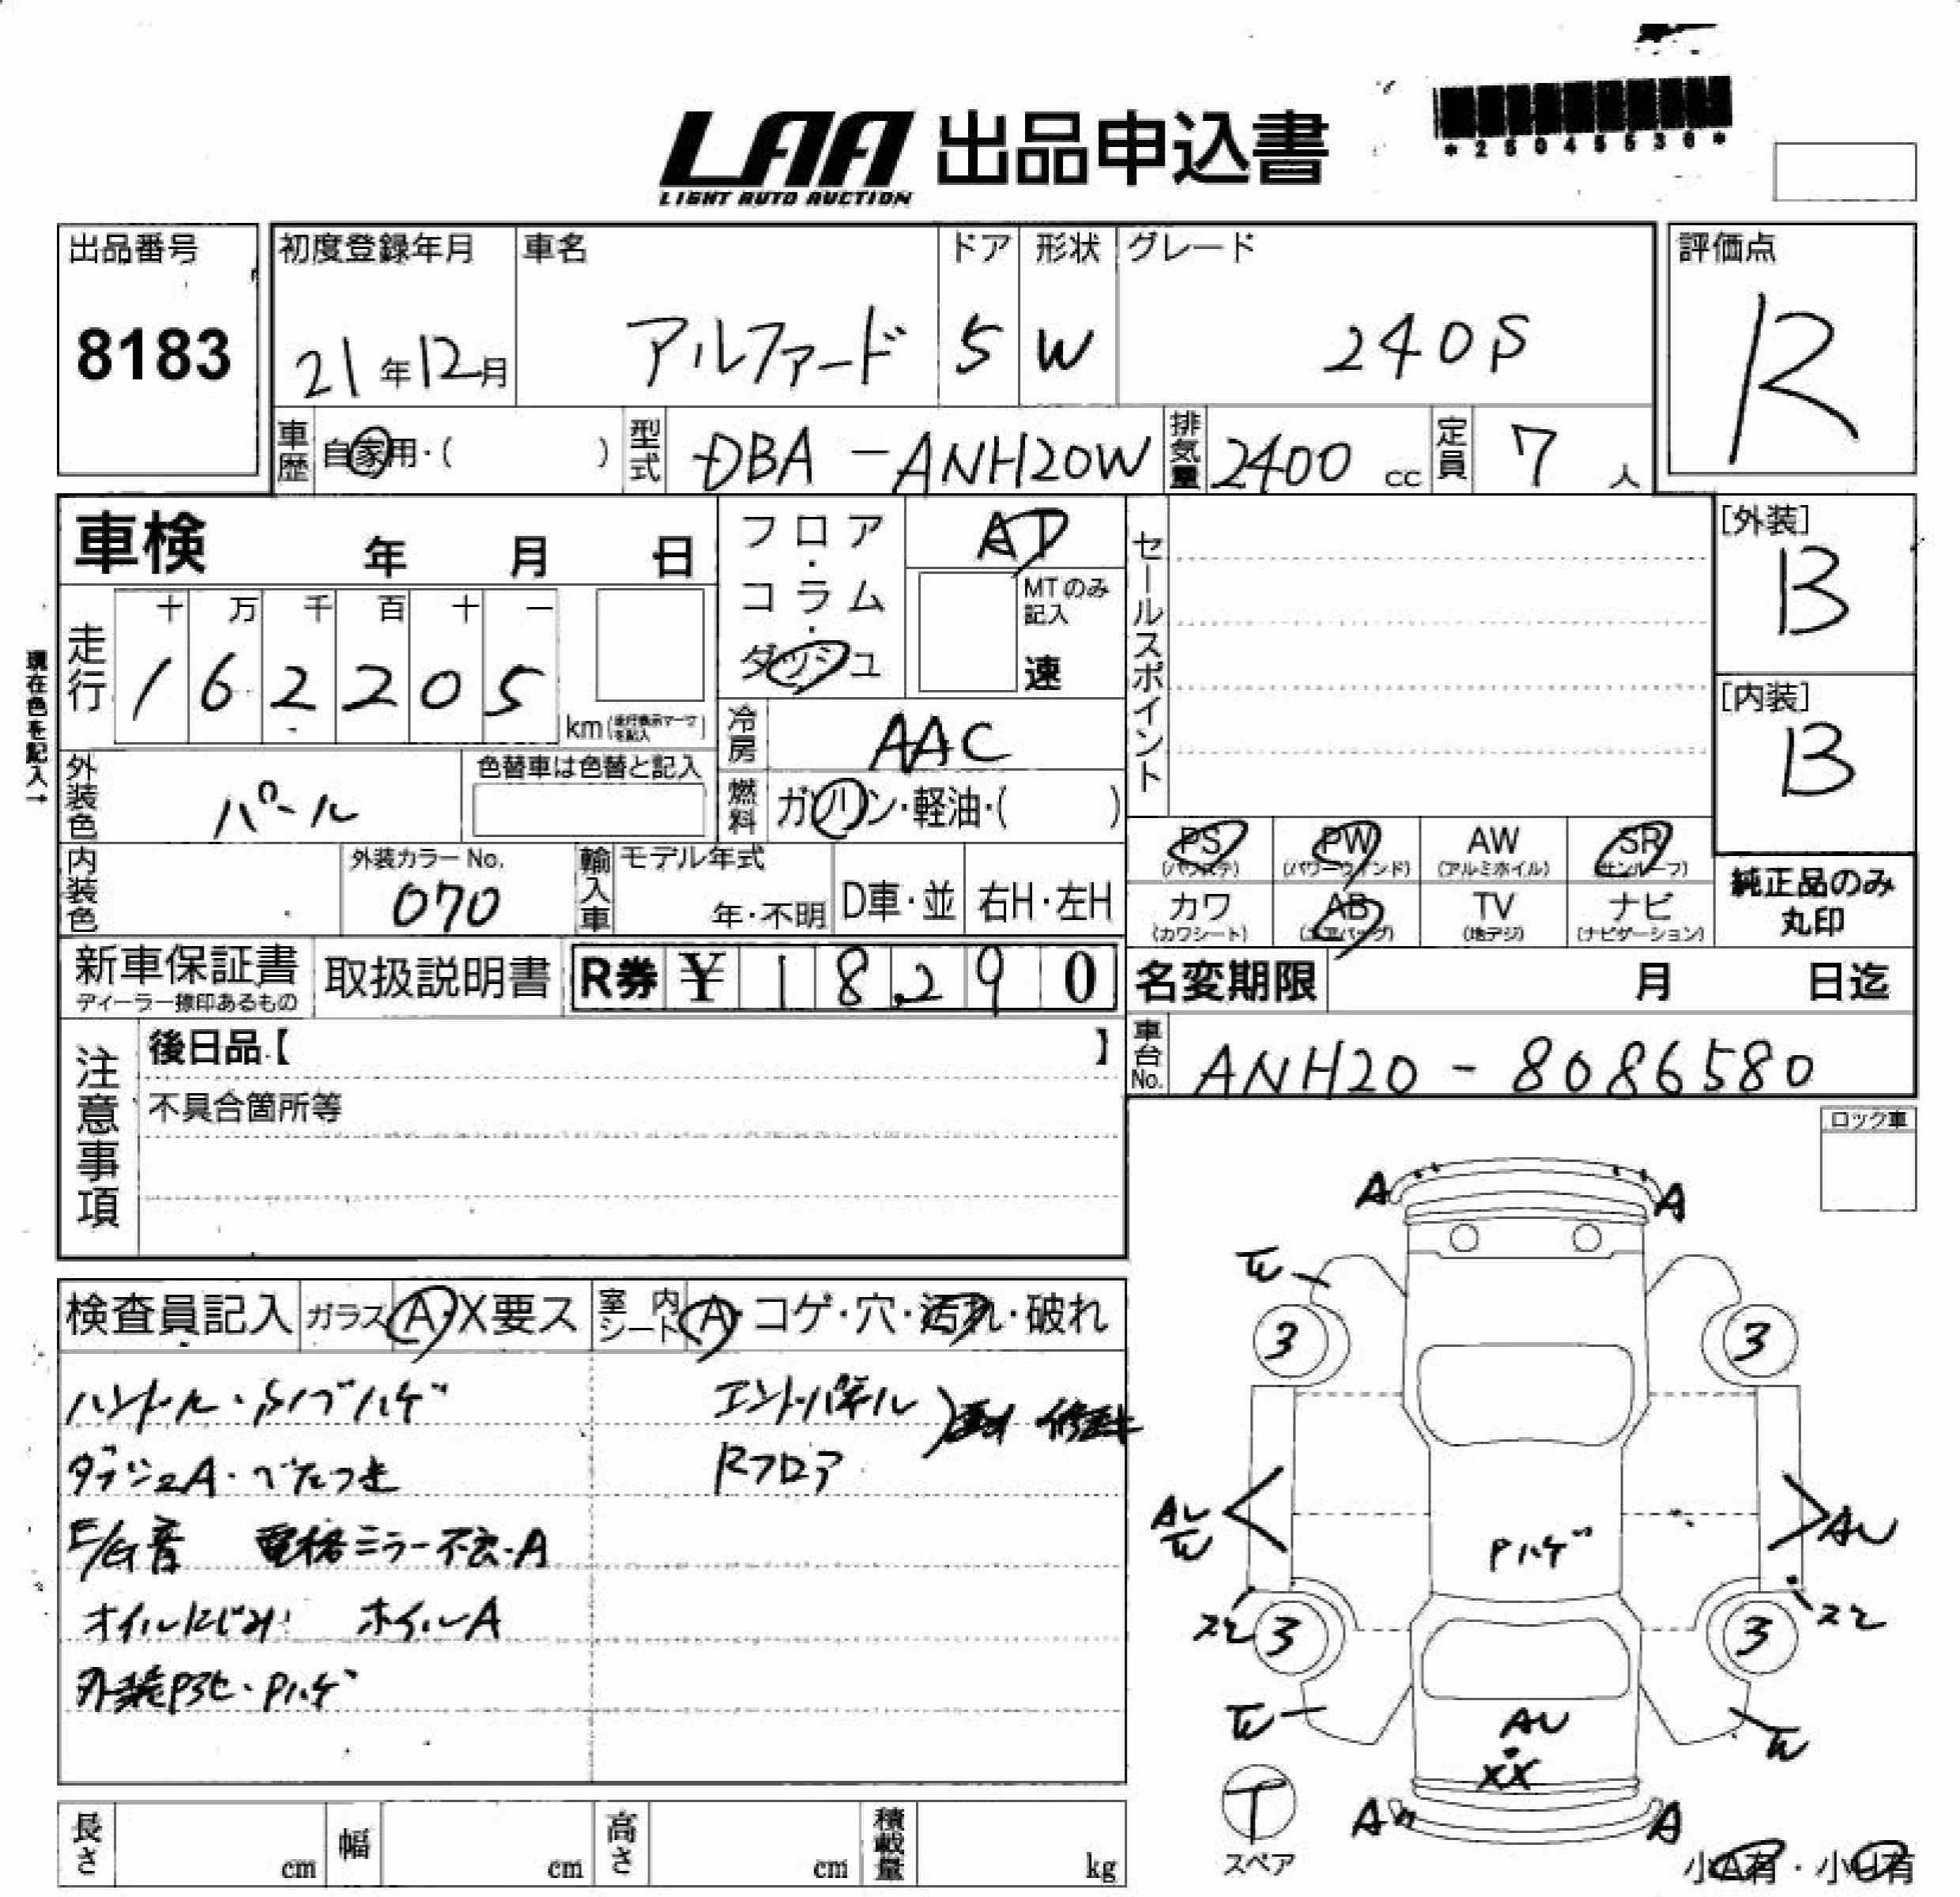 LAA 出品申込書
LIGHT AUTO AUCTION
出品番号
8183
初度登録年月
21年12月
車名
アルファード
ドア
5
形状
W
グレード
240S
評価点
R
車歴 自家用・( )
型式 DBA-ANH20W
排気量 2400 cc
定員 7 人
車検 年 月 日
フロア・コラム・ダッシュ
AT
MTのみ記入
速
セールスポイント
[外装]
B
[内装]
B
現在色を記入→
走行
十 万 千 百 十 一
1 6 2 2 0 5
km
冷房 AAC
外装色 パール
色替車は色替と記入
燃料 ガソリン・軽油・( )
PS (パワステ)
PW (パワーウインド)
AW (アルミホイル)
SR (サンルーフ)
カワ (カワシート)
AB (エアバッグ)
TV (地デジ)
ナビ (ナビゲーション)
純正品のみ
丸印
内装色
外装カラーNo.
070
輸入車
モデル年式
年・不明
D車・並
右H・左H
新車保証書
ディーラー捺印あるもの
取扱説明書
R券 ¥ 1 8 2 9 0
名変期限 月 日迄
車台No. ANH20-8086580
注意事項
後日品【 】
不具合箇所等
ロック車
検査員記入
ガラス A・X要ス
室内シート A・コゲ・穴・汚れ・破れ
ハンドル・ノブハゲ
エンドパネル
ダッシュA・べたつき
Rフロア
E/G音 電格ミラー不良・A
オイルにじみ ホイルA
外装PヨレPハゲ
A A
W
3 3
AU
W
AU
Pハゲ
3 3
W
AU
W
XX
A A
T
スペア
小A有・小U有
長さ cm
幅 cm
高さ cm
積載量 kg